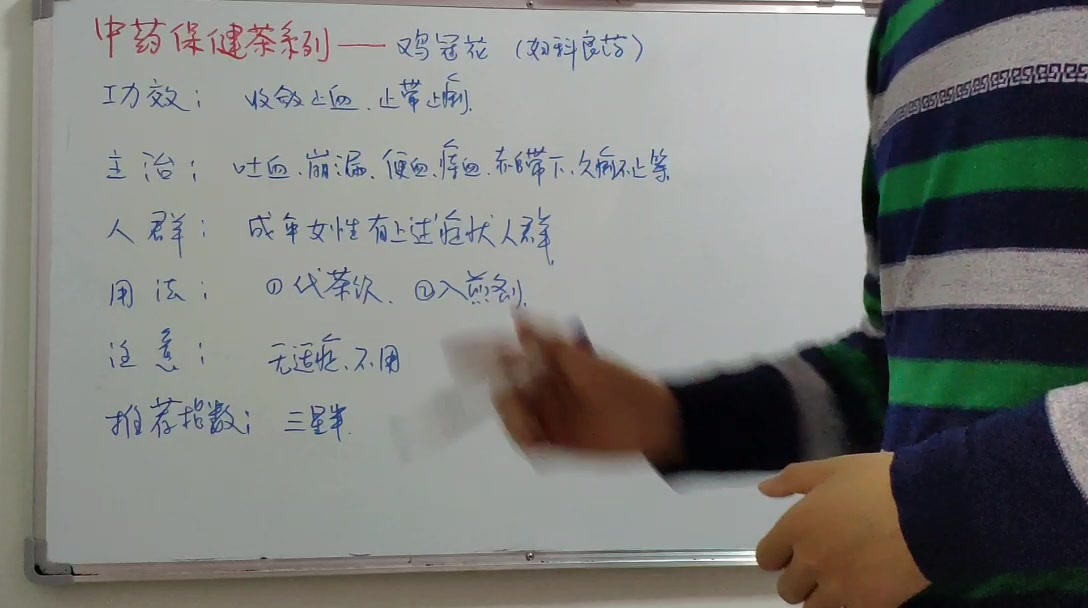 中药保健茶系列——鸡冠花（妇科良药）
功效： 收敛止血、止带止痢.
主治： 吐血、崩漏、便血、痔血、赤白带下、久痢不止等
人群： 成年女性有上述症状人群
用法： ①代茶饮、②入煎剂.
注意： 无适症、不用
推荐指数： 三星半.